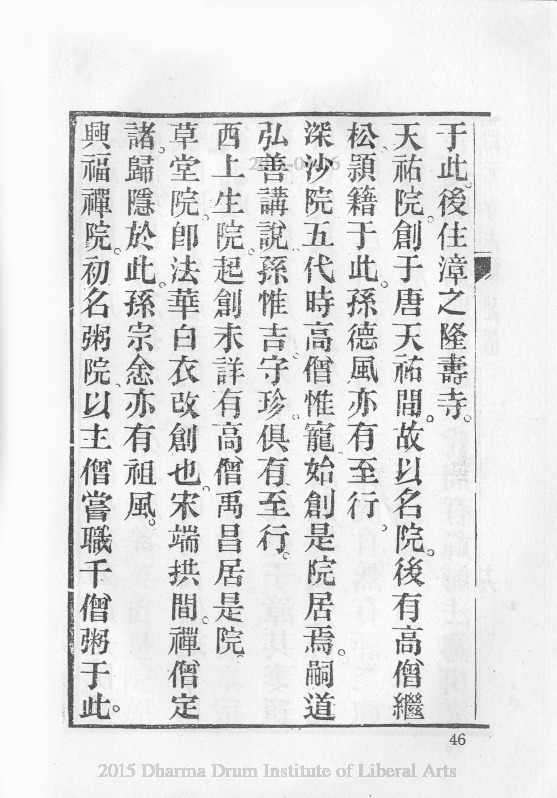 于此。後住漳之隆壽寺。
天祐院。創于唐天祐間。故以名院。後有高僧繼
松頴籍于此。孫德風亦有至行。
深沙院五代時高僧惟寵始創是院居焉。嗣道
弘善講說。孫惟吉。守珍。俱有至行。
西上生院。起創未詳有高僧禹昌居是院
草堂院。卽法華白衣改創也。宋端拱間。禪僧定
諸歸隱於此。孫宗悆亦有祖風。
興福禪院。初名粥院。以主僧嘗職千僧粥于此。
46
2015 Dharma Drum Institute of Liberal Arts